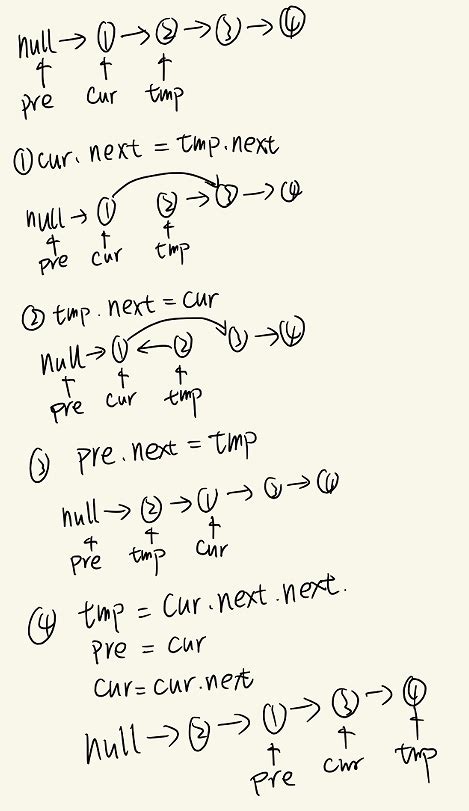 null → ① → ② → ③ → ④
pre cur tmp
① cur. next = tmp.next
null → ① ② → ③ → ④
pre cur tmp
② tmp. next = cur
null → ① ← ② ③ → ④
pre cur tmp
③ pre.next = tmp
null → ② → ① → ③ → ④
pre tmp cur
④ tmp = cur.next.next.
pre = cur
cur = cur.next
null → ② → ① → ③ → ④
pre cur tmp